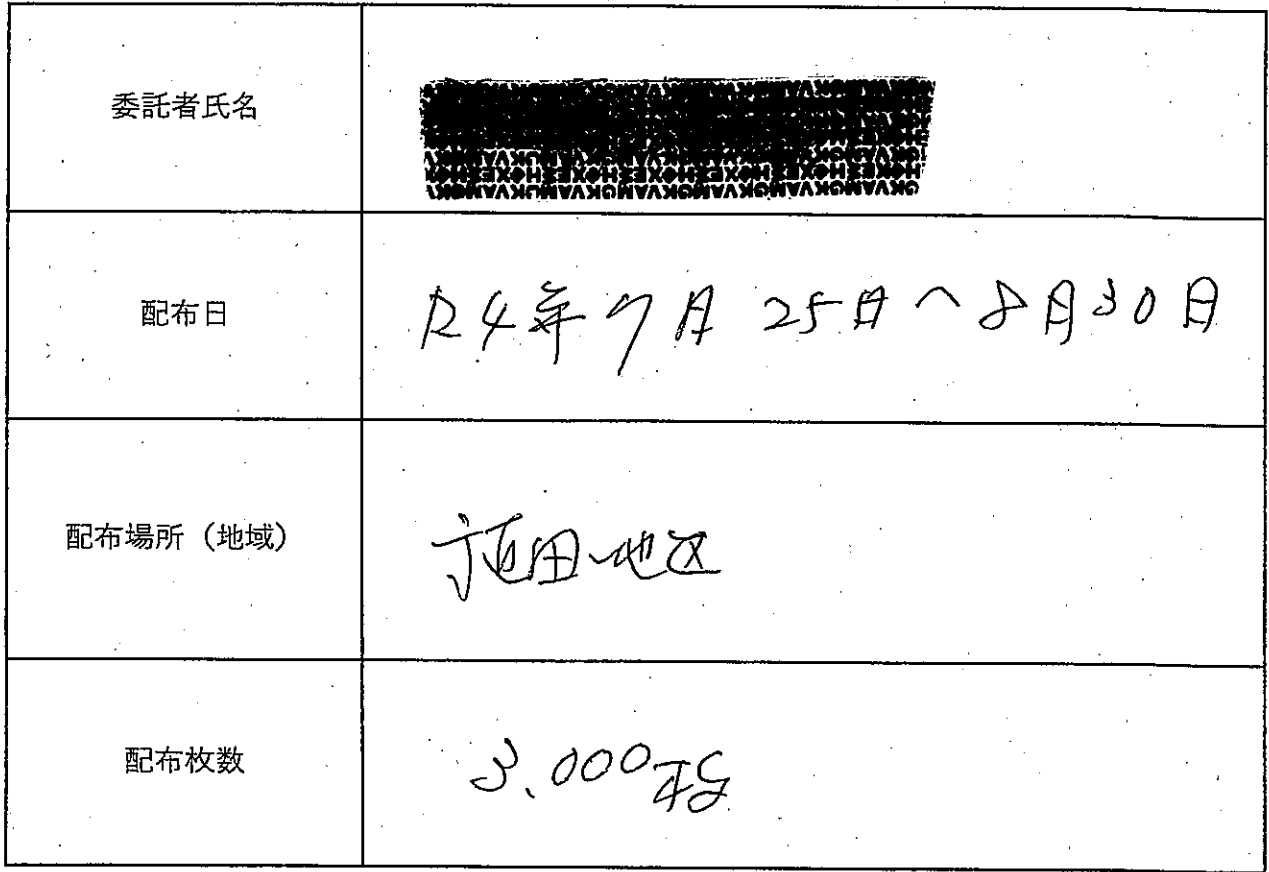 委託者氏名
配布日
R4年7月25日~8月30日
配布場所(地域)
田地区
配布枚数
3,000枚